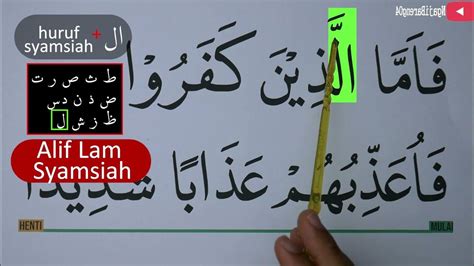 huruf syamsiah + ال
ط ث ص ر ت
ض ذ ن د س
ظ ز ش ل
Alif Lam
Syamsiah
NgajiBareng04
فَاَمَّا الَّذِيْنَ كَفَرُوْا
فَاُعَذِّبُهُمْ عَذَابًا شَدِيْدًا
HENTI
MULAI